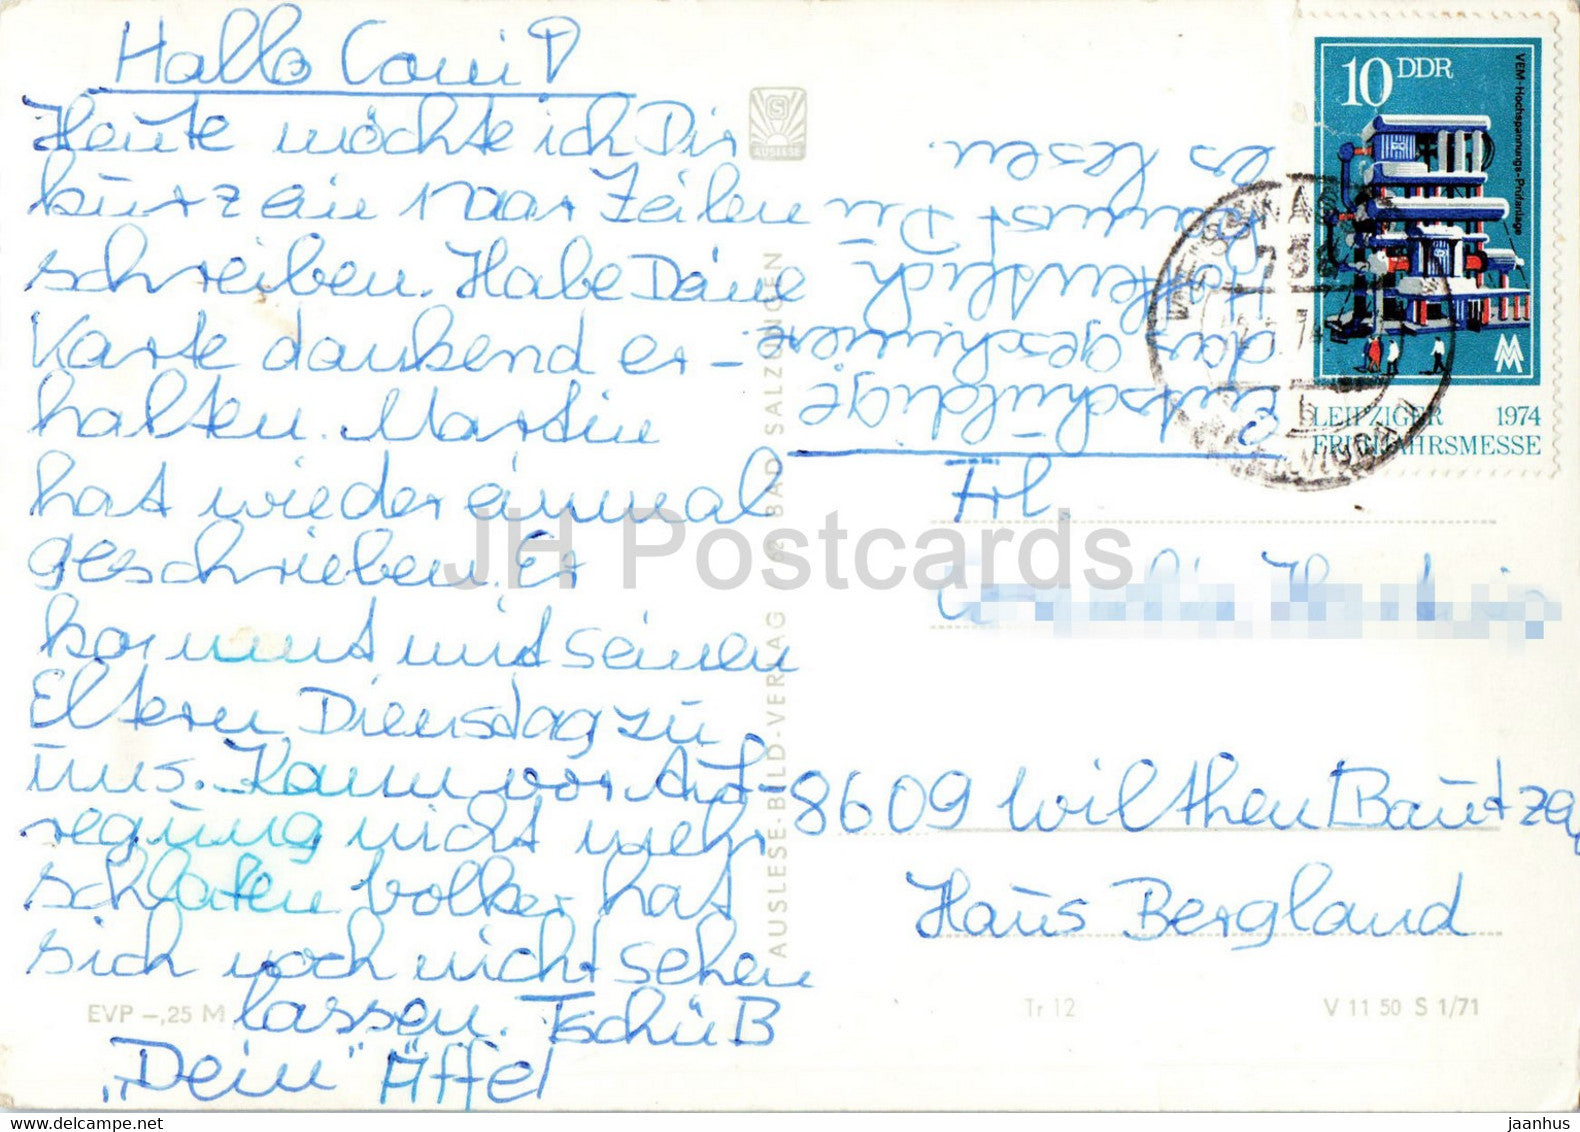 Hallo Coni!
Heute möchte ich Dir
kurz ein paar Zeilen
schreiben. Habe Deine
Karte dankend er-
halten. Martin
hat wieder einmal
geschrieben. Er
kommt mit seinen
Eltern Dienstag zu
uns. Kann vor Auf-
regung nicht mehr
schlafen. Volker hat
sich noch nicht sehen
lassen. Tschüß
"Dein" Äffel
Entschuldige
das geschmiere
Hoffentlich
kannst Du
es lesen.
AUSLESE
AUSLESE-BILD-VERLAG BAD SALZUNGEN
10 DDR
VEM-Hochspannungs-Prüfanlage
MM
LEIPZIGER 1974
FRÜHJAHRSMESSE
Frl.
8609 Wilthen/Bautzen
Haus Bergland
EVP –,25 M
Tr 12
V 11 50 S 1/71
JH Postcards
delcampe.net
jaanhus